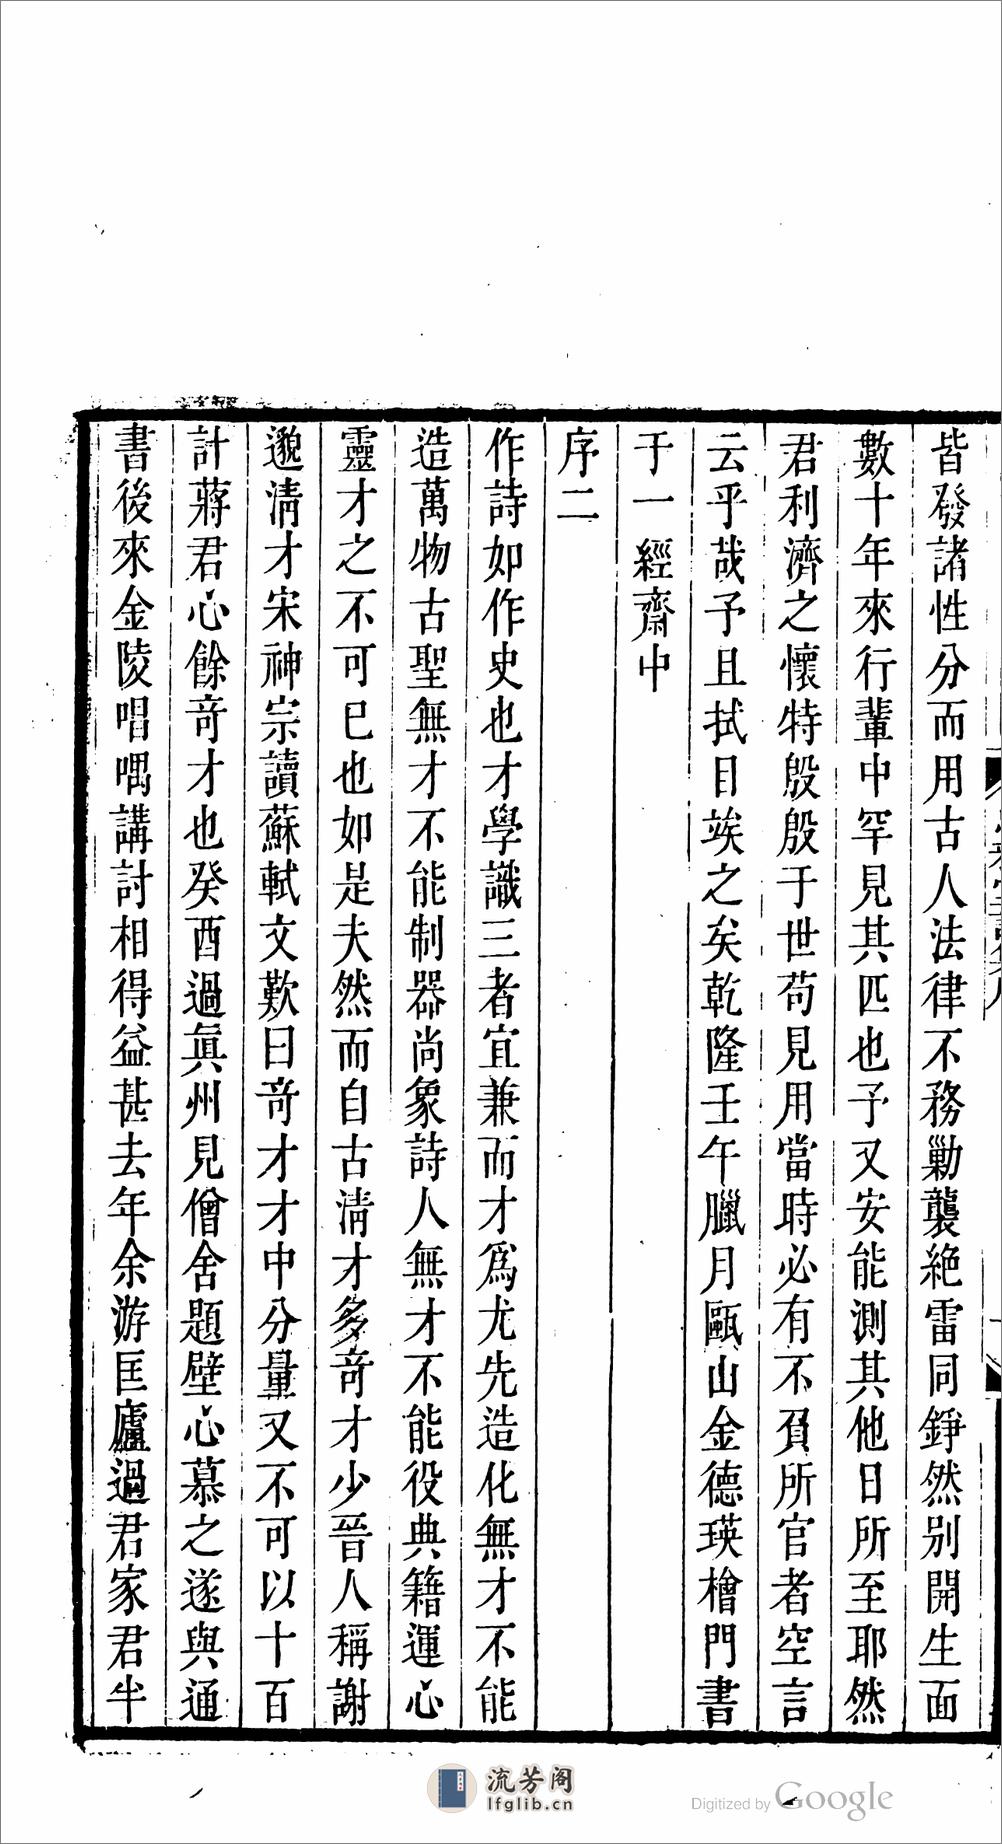 皆發諸性分而用古人法律不務勦襲絕雷同錚然別開生面
數十年來行輩中罕見其匹也予又安能測其他日所至耶然
君利濟之懷特殷殷于世苟見用當時必有不負所官者空言
云乎哉予且拭目竢之矣乾隆壬午臘月甌山金德瑛檜門書
于一經齋中
序二
作詩如作史也才學識三者宜兼而才爲尤先造化無才不能
造萬物古聖無才不能制器尚象詩人無才不能役典籍運心
靈才之不可已也如是夫然而自古淸才多奇才少晉人稱謝
邈淸才宋神宗讀蘇軾文歎曰奇才才中分量又不可以十百
計蔣君心餘奇才也癸酉過眞州見僧舍題壁心慕之遂與通
書後來金陵唱喁講討相得益甚去年余游匡廬過君家君半
流芳阁
lfglib.cn
Digitized by Google